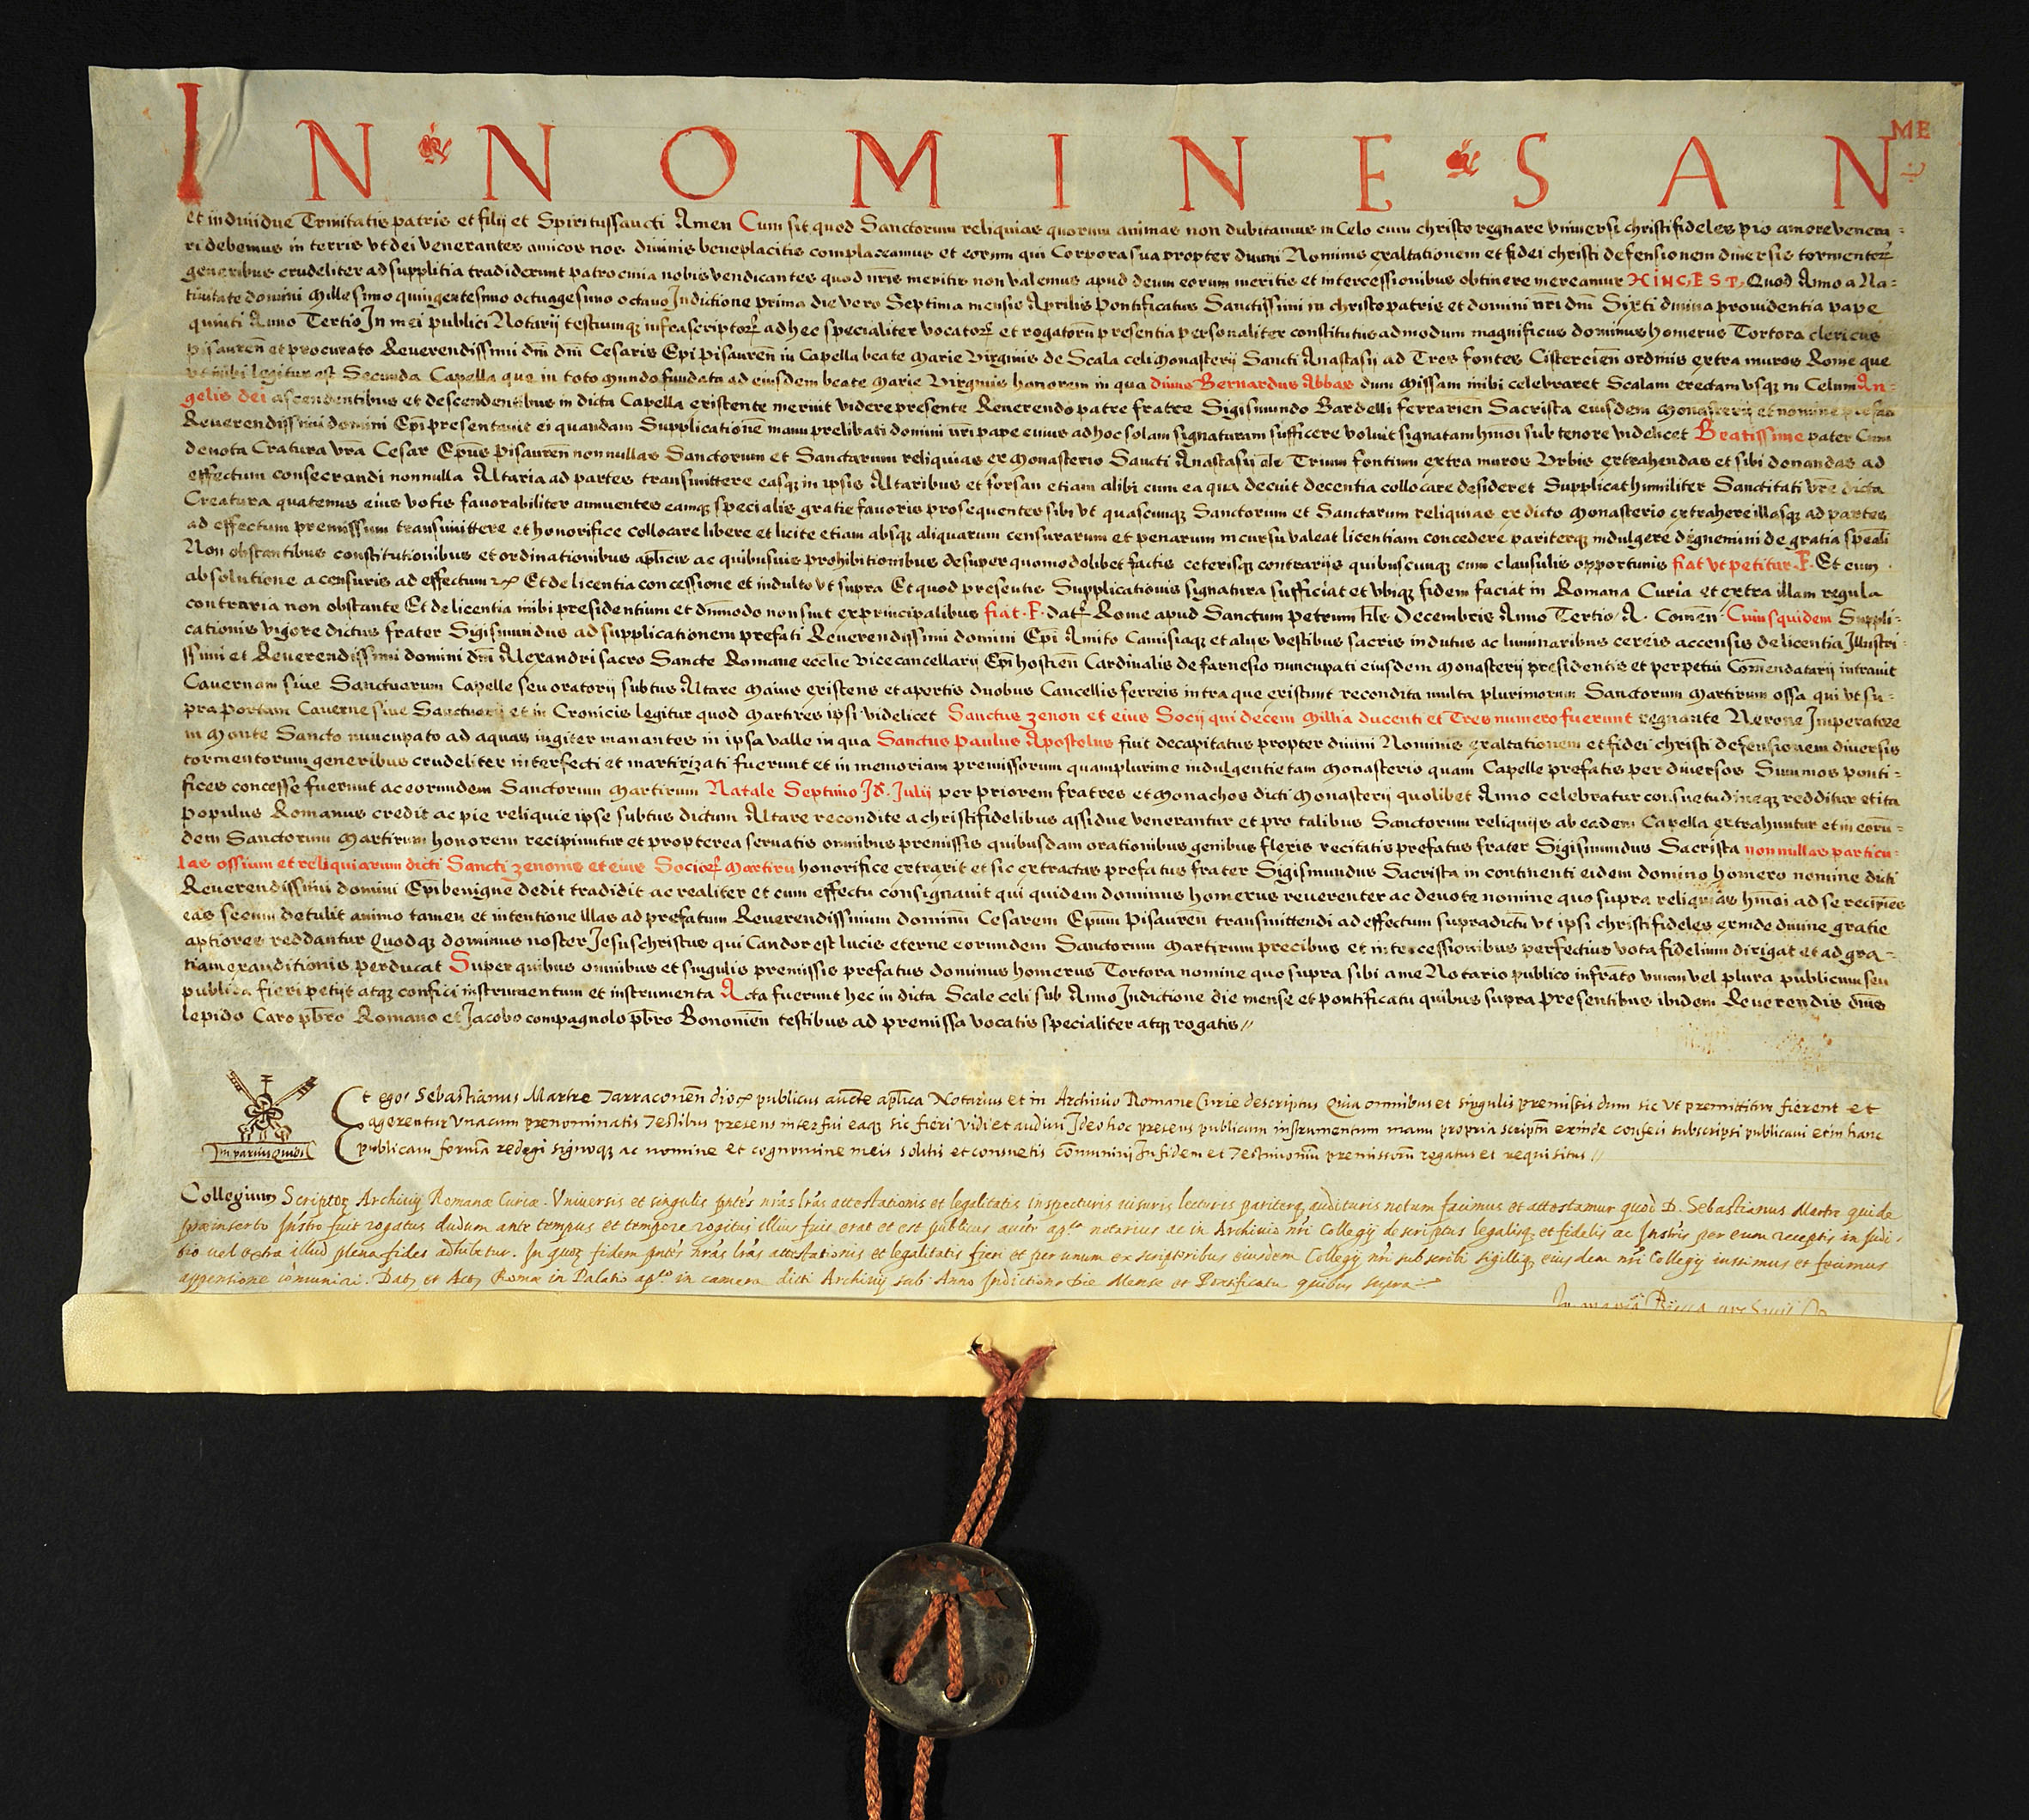 IN NOMINE SANME
et individue Trinitatis patris et filij et Spiritussancti Amen Cum sit quod Sanctorum reliquias quorum animas non dubitamus in Celo cum christo regnare universi christifideles pio amore venera-
ri debemus in terris vt dei venerantes amicos nos divinis beneplacitis complaceamus et eorum qui Corpora sua propter divini Nominis exaltationem et fidei christi defensionem diversis tormentoꝝ
generibus crudeliter ad supplitia tradiderunt patrocinia nobis vendicantes quod nr̄is meritis non valemus apud deum eorum meritis et intercessionibus obtinere mereamur HINC EST, Quod Anno a Na-
tivitate domini Millesimo quingentesimo octuagesimo octavo Indictione prima die vero Septima mensis Aprilis Pontificatus Sanctissimi in christo patris et domini nr̄i dn̄i Sixti divina providentia pape
quinti Anno Tertio In mei publici Notarij testiumqꝫ infrascriptoꝝ ad hec specialiter vocatoꝝ et rogatorū presentia personaliter constitutus admodum magnificus dominus homerus Tortora clericus
pisaureñ et procurato Reverendissimi dn̄i dn̄i Cesaris Ep̄i pisaureñ in Capella beate Marie Virginis de Scala celi Monasterij Sancti Anastasij ad Tres fontes Cistercień ordinis extra muros Rome que
vt inibi legitur est Secunda Capella que in toto mundo fundata ad eiusdem beate Marie Virginis honorem in qua divus Bernardus Abbas dum Missam inibi celebraret Scalam erectam vsqꝫ in Celum An-
gelis dei ascendentibus et descendentibus in dicta Capella existente meruit videre presente Reverendo patre fratre Sigismundo Bardelli ferrarień Sacrista eiusdem Monasterij et nomine prefati
Reverendissimi domini Ep̄i presentavit ei quandam Supplicatione manu prelibati domini nr̄i pape cuius ad hoc solam signaturam sufficere voluit signatam hm̄oi sub tenore videlicet Beatissime pater Cum
devota Cratura vr̄a Cesar Ep̄us pisaureñ nonnullas Sanctorum et Sanctarum reliquias ex Monasterio Sancti Anastasij al̄s Trium fontium extra muros Vrbis extrahendas et sibi donandas ad
effectum consecrandi nonnulla Altaria ad partes transmittere easqꝫ in ipsis Altaribus et forsan etiam alibi cum ea qua decuit decentia collocare desideret Supplicat humiliter Sanctitati vr̄e dicta
Creatura quatenus eius votis favorabiliter annuentes eamqꝫ specialis gratie favoris prosequentes sibi vt quascunqꝫ Sanctorum et Sanctarum reliquias ex dicto Monasterio extrahere illasqꝫ ad partes
ad effectum premissum transmittere et honorifice collocare libere et licite etiam absqꝫ aliquarum censurarum et penarum incursu valeat licentiam concedere pariterqꝫ indulgere dignemini de gratia speāli
Non obstantibus constitutionibus et ordinationibus ap̄licis ac quibusvis prohibitionibus desuper quomodolibet factis ceterisqꝫ contrarijs quibuscunqꝫ cum clausulis opportunis fiat vt petitur .F. Et cum
absolutione a censuris ad effectum &c Et de licentia concessione et indulto vt supra Et quod presentis Supplicationis signatura sufficiat et vbiqꝫ fidem faciat in Romana Curia et extra illam regula
contraria non obstante Et de licentia inibi presidentium et dūmodo non sint ex principalibus fiat .F. Dat̄ Rome apud Sanctum Petrum kl̄s Decembris Anno Tertio A. Comeñ. Cuiusquidem Suppli-
cationis vigore dictus frater Sigismundus ad supplicationem prefati Reverendissimi domini Ep̄i Amito Camisiaqꝫ et alijs vestibus sacris indutus ac luminaribus cereis accensis de licentia Illustri-
ssimi et Reverendissimi domini dn̄i Alexandri sacro Sancte Romane ecclie Vicecancellarij Ep̄i hostień Cardinalis de farnesio nuncupati eiusdem Monasterij presidentis et perpetui Com̄endatarij intravit
Cavernam sive Sanctuarum Capelle seu oratorij subtus Altare Maius existens et apertis duobus Cancellis ferreis intra que existunt recondita multa plurimorum Sanctorum Martirum ossa qui vt su-
pra portam Caverne sive Sanctuarij et in Cronicis legitur quod Martires ipsi videlicet Sanctus zenon et eius Socij qui decem Millia ducenti et Tres numero fuerunt regnante Nerone Imperatore
in Monte Sancto nuncupato ad aquas iugiter manantes in ipsa valle in qua Sanctus Paulus Apostolus fuit decapitatus propter divini Nominis exaltationem et fidei christi defensionem diversis
tormentorum generibus crudeliter interfecti et martirizati fuerunt et in memoriam premissorum quamplurime indulgentie tam Monasterio quam Capelle prefatis per diversos Summos ponti-
fices concesse fuerunt ac eorundem Sanctorum Martirum Natale Septimo Jd. Julij per priorem fratres et Monachos dicti Monasterij quolibet Anno celebratur consuetudineqꝫ redditur et ita
populus Romanus credit ac pie reliquie ipse subtus dictum Altare recondite a christifidelibus assidue venerantur et pro talibus Sanctorum reliquijs ab eadem Capella extrahuntur et in eorū-
dem Sanctorum Martirum honorem recipiuntur et propterea servatis omnibus premissis quibusdam orationibus genibus flexis recitatis prefatus frater Sigismundus Sacrista nonnullas particu-
las ossium et reliquiarum dicti Sancti zenonis et eius Socioꝝ Martirū honorifice extraxit et sic extractas prefatus frater Sigismundus Sacrista in continenti eidem domino homero nomine dicti
Reverendissimi domini Ep̄i benigne dedit tradidit ac realiter et cum effectu consignavit qui quidem dominus homerus reverenter ac devote nomine quo supra reliquias hm̄oi ad se recipiēs
eas secum detulit animo tamen et intentione illas ad prefatum Reverendissimum dominū Cesarem Ep̄um Pisaureñ transmittendi ad effectum supradictū vt ipsi christifideles exinde divine gratie
aptiores reddantur Quodqꝫ dominus noster Jesus christus qui Candor est lucis eterne eorundem Sanctorum Martirum precibus et intercessionibus perfectius vota fidelium dirigat et ad gra-
tiam exauditionis perducat Super quibus omnibus et singulis premissis prefatus dominus homerus Tortora nomine quo supra sibi a me Notario publico infrāto vnum vel plura publicum seu
publica fieri petijt atqꝫ confici instrumentum et instrumenta Acta fuerunt hec in dicta Scale celi sub Anno Indictione die mense et pontificatu quibus supra Presentibus ibidem Reverendis dn̄is
lepido Caro pb̄ro Romano et Jacobo compagnolo pb̄ro Bononień testibus ad premissa vocatis specialiter atqꝫ rogatis //
Et ego Sebastianus Martre Tarraconeñ dioc̄ publicus auct̄e ap̄lica Notarius et in Archivio Romane Curie descriptus Quia omnibus et singulis premissis dum sic vt premittitur fierent et
agerentur vnacum prenominatis Testibus presens interfui eaqꝫ sic fieri vidi et audivi Ideo hoc presens publicum instrumentum manu propria scriptū exinde confeci subscripsi publicavi et in hanc
publicam formā redegi signoqꝫ ac nomine et cognomine meis solitis et consuetis com̄univi In fidem et Testimoniū premissorū rogatus et requisitus //
Collegium Scriptoꝝ Archivij Romanæ Curiæ. Vniversis et singulis pn̄tes nr̄as lr̄as attestationis et legalitatis inspecturis visuris lecturis pariterqꝫ audituris notum facimus et attestamur quod D. Sebastianus Martre qui de
præinserto Instr̄o fuit rogatus dudum ante tempus et tempore rogitus illius fuit erat et est publicus auct̄e ap̄lica notarius ac in Archivio nr̄i Collegij descriptus legalisqꝫ et fidelis ac Instr̄is per eum receptis in Judi-
cio vel extra illud plena fides adhibetur. In quoꝝ fidem pn̄tes nr̄as lr̄as attestationis et legalitatis fieri et per unum ex scriptoribus eiusdem Collegij nr̄i subscribi sigilliqꝫ eiusdem nr̄i Collegij iussimus et fecimus
appensione com̄uniri. Dat. et Act. Romæ in Palatio ap̄lico in camera dicti Archivij sub Anno Indictione Die Mense et Pontificatu quibus supra